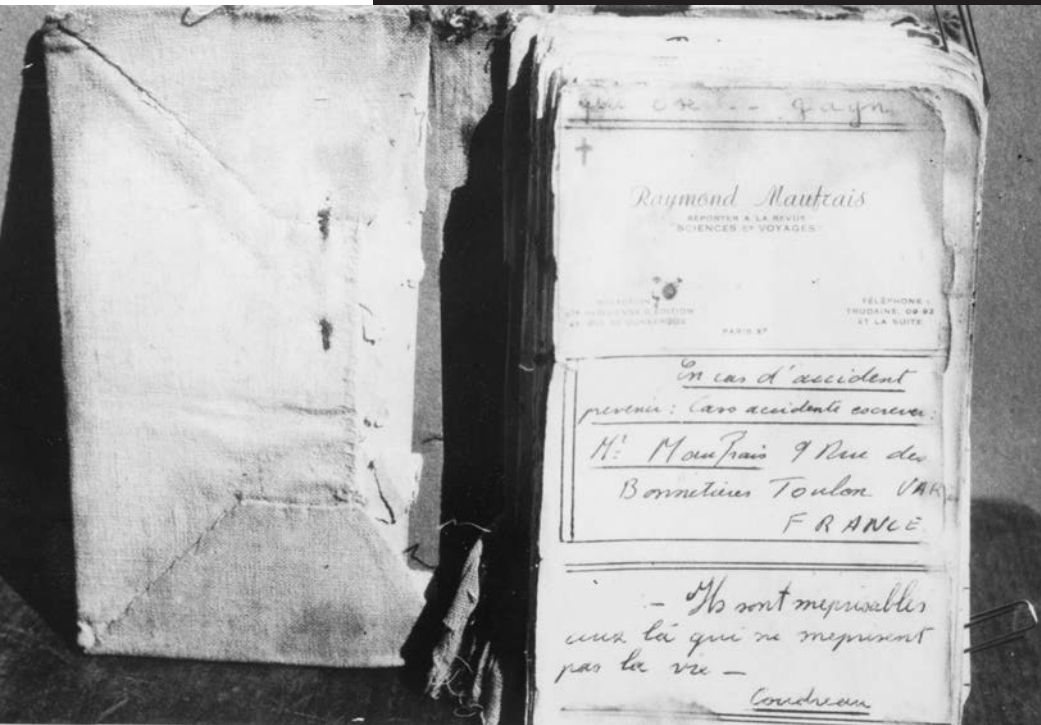 qui ose - - gagn
Raymond Maufrais
REPORTER A LA REVUE
"SCIENCES ET VOYAGES"
PARIS Xe
TÉLÉPHONE :
TRUDAINE 09-92
ET LA SUITE
En cas d'accident
prevenir : Caso accidente escrever :
Mr Maufrais 9 Rue des
Bonnetières Toulon VAR
FRANCE
- Ils sont meprisables
ceux là qui ne meprisent
pas la vie -
Coudreau